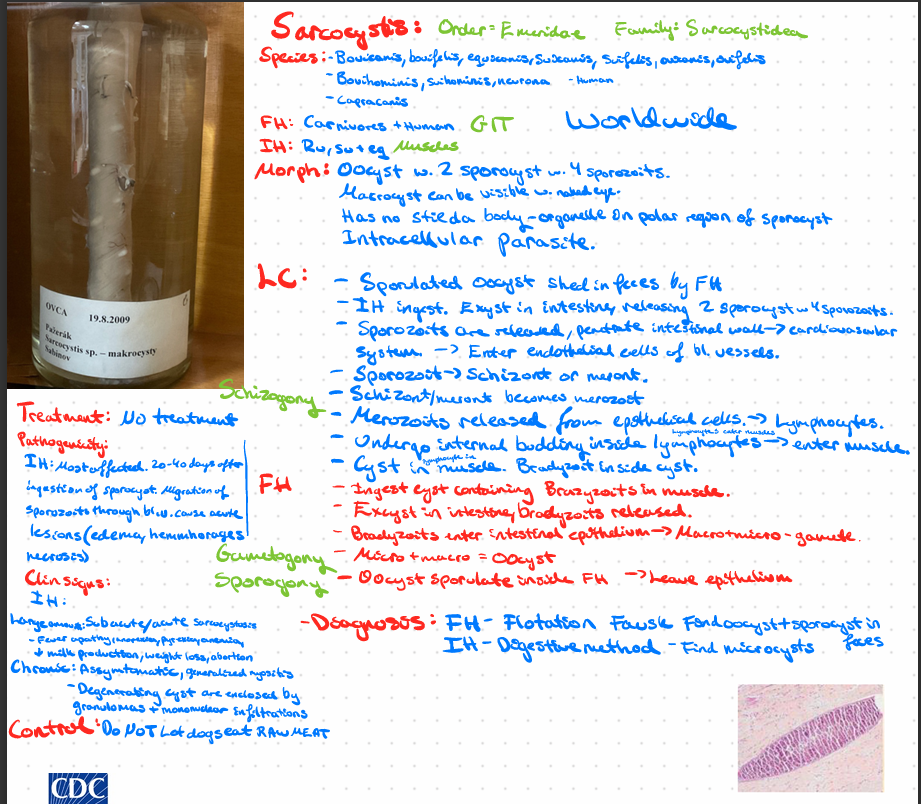 Sarcocystis: Order = Emeridae Family: Sarcocystidea
Species: - Bovicanis, bovifelis, equicanis, Suicanis, Suifelis, ovicanis, ovifelis
- Bovihominis, suihominis, neurona - Human
- Capracanis
FH: Carnivores + Human GIT Worldwide
IH: Ru, su + eq Muscles
Morph: Oocyst w. 2 sporocyst w. 4 sporozoits.
Macrocyst can be visible w. naked eye.
Has no stieda body - organelle on polar region of sporocyst
Intracellular parasite.
OVCA 19.8.2009
6
Pažerák
Sarcocystis sp. – makrocysty
Sabinov
LC: - Sporulated oocyst shed in feces by FH
- IH ingest. Exyst in intestine, releasing 2 sporocyst w 4 sporozoits.
- Sporozoits are released, penetrate intestinal wall → cardiovascular
system → Enter endothelial cells of bl. vessels.
- Sporozoit → Schizont or meront.
Schizogony - Schizont/meront becomes merozoit
- Merozoits released from epethelical cells. → Lymphocytes.
Lymphocytes enter muscles
- Undergo internal budding inside lymphocytes → enter muscle.
lymphocyte in
- Cyst in muscle. Bradyzoit inside cyst.
FH - Ingest cyst containing Brazyzoits in muscle.
- Excyst in intestine, bradyzoits released.
- Bradyzoits enter intestinal epithelium → Macro + micro-gamete.
Gametogony - Micro + macro = Oocyst
Sporogony - Oocyst sporulate inside FH → Leave epithelium
Treatment: No treatment
Pathogenicity:
IH: Most affected. 20-40 days after
ingestion of sporocyst. Migration of
sporozoits through bl.v. cause acute
lesions (edema, hemmhorages
necrosis)
Clin signs:
IH:
Large amous: Subacute/acute sarcocystosis
- Fever apathy, inorexia, pyrexia, anemia,
↓ milk production, weight loss, abortion
Chronic: Assymtomatic, generalized myositis
- Degenerating cyst are enclosed by
granulomas + mononuclear infiltrations
Control: Do NOT Let dogs eat RAW MEAT
- Diagnosis: FH - Flotation Faust Find oocyst + sporocyst in
feces
IH - Digestive method - Find microcysts
CDC